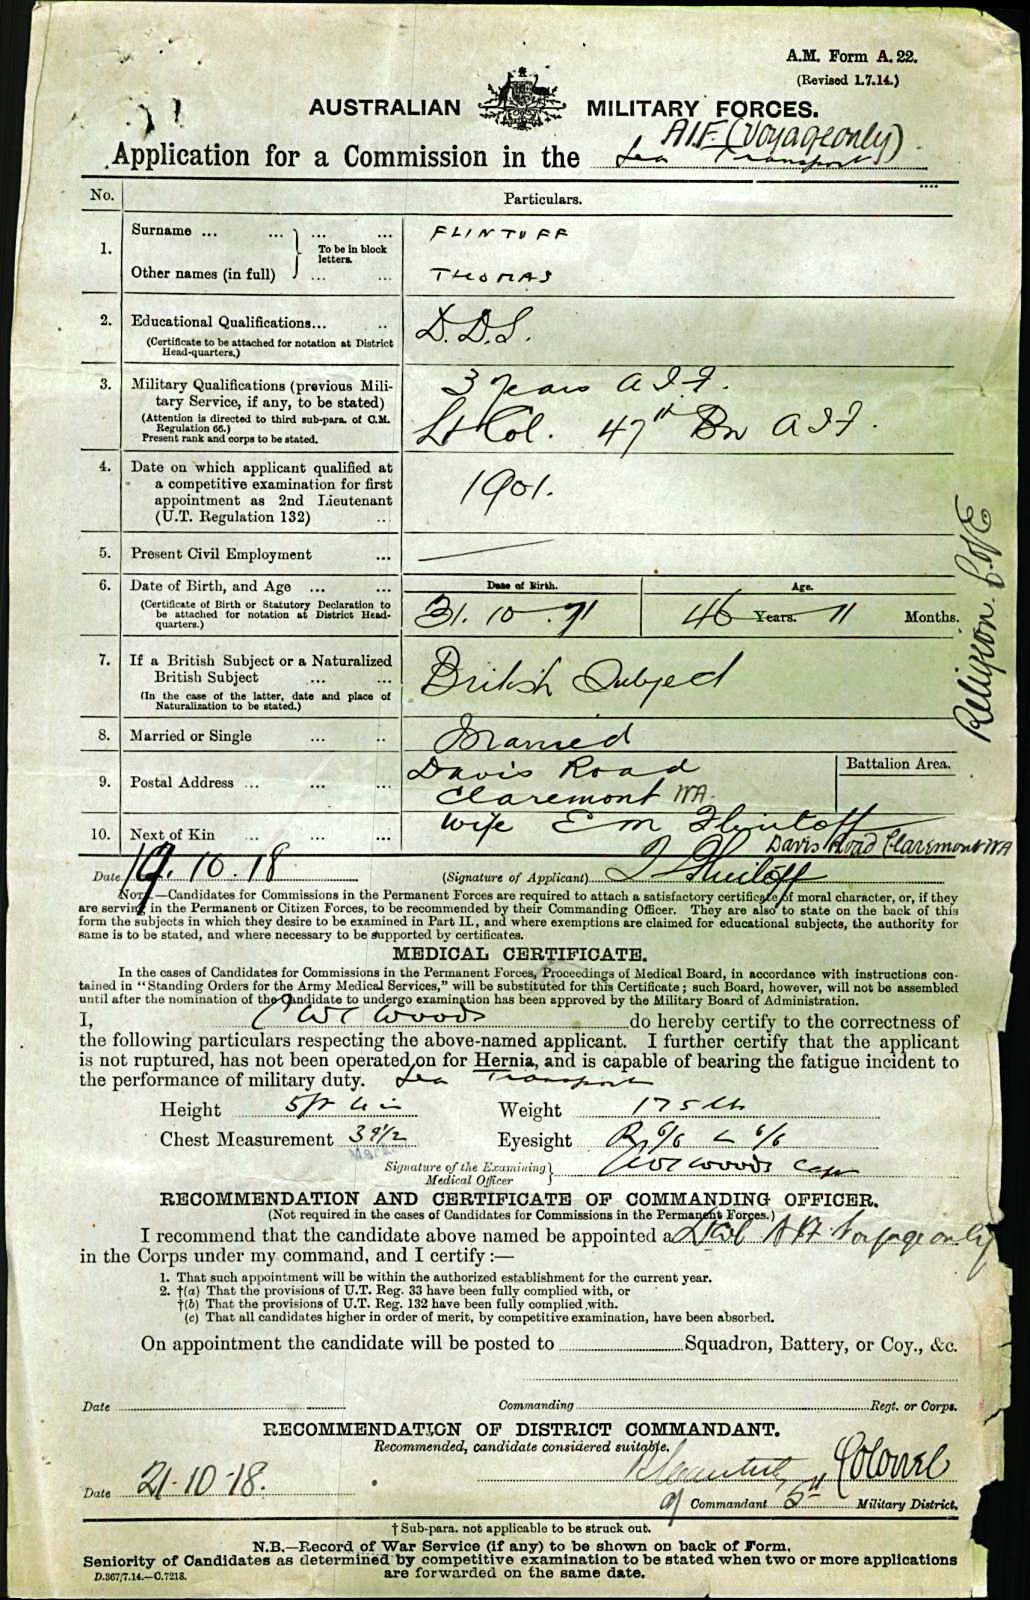 A.M. Form A. 22.
(Revised 1.7.14.)
AUSTRALIAN MILITARY FORCES.
AIF (Voyage only)
Application for a Commission in the Sea Transport
No. Particulars.
1. Surname ... ... ... ... FLINTOFF
To be in block letters.
Other names (in full) ... ... THOMAS
2. Educational Qualifications... .. D.D.S.
(Certificate to be attached for notation at District
Head-quarters.)
3. Military Qualifications (previous Mili- 3 years A I F.
tary Service, if any, to be stated)
(Attention is directed to third sub-para. of C.M. Lt Col. 47th Bn A I F.
Regulation 66.)
Present rank and corps to be stated.
4. Date on which applicant qualified at
a competitive examination for first 1901.
appointment as 2nd Lieutenant
(U.T. Regulation 132) ...
5. Present Civil Employment ...
6. Date of Birth, and Age ... ... Date of Birth. Age.
(Certificate of Birth or Statutory Declaration to 31. 10. 71 46 Years. 11 Months.
be attached for notation at District Head-
quarters.)
7. If a British Subject or a Naturalized British Subject
British Subject ... ...
(In the case of the latter, date and place of
Naturalization to be stated.)
8. Married or Single ... .. Married
9. Postal Address ... ... ... Davis Road
Claremont WA.
Battalion Area.
10. Next of Kin ... ... ... Wife E M Flintoff
Davis Road Claremont WA
Religion C of E
Date 19.10.18 (Signature of Applicant) T Flintoff
NOTE.—Candidates for Commissions in the Permanent Forces are required to attach a satisfactory certificate of moral character, or, if they
are serving in the Permanent or Citizen Forces, to be recommended by their Commanding Officer. They are also to state on the back of this
form the subjects in which they desire to be examined in Part II., and where exemptions are claimed for educational subjects, the authority for
same is to be stated, and where necessary to be supported by certificates.
MEDICAL CERTIFICATE.
In the cases of Candidates for Commissions in the Permanent Forces, Proceedings of Medical Board, in accordance with instructions con-
tained in "Standing Orders for the Army Medical Services," will be substituted for this Certificate; such Board, however, will not be assembled
until after the nomination of the Candidate to undergo examination has been approved by the Military Board of Administration.
I, Woods do hereby certify to the correctness of
the following particulars respecting the above-named applicant. I further certify that the applicant
is not ruptured, has not been operated on for Hernia, and is capable of bearing the fatigue incident to
the performance of military duty. Sea Transport
Height 5ft in Weight 175 lb
Chest Measurement 39½ Eyesight R 6/6 L 6/6
Signature of the Examining Woods Capt
Medical Officer
RECOMMENDATION AND CERTIFICATE OF COMMANDING OFFICER.
(Not required in the cases of Candidates for Commissions in the Permanent Forces.)
I recommend that the candidate above named be appointed a Lt Col AIF Voyage only
in the Corps under my command, and I certify :—
1. That such appointment will be within the authorized establishment for the current year.
2. †(a) That the provisions of U.T. Reg. 33 have been fully complied with, or
†(b) That the provisions of U.T. Reg. 132 have been fully complied with.
(c) That all candidates higher in order of merit, by competitive examination, have been absorbed.
On appointment the candidate will be posted to Squadron, Battery, or Coy., &c.
Date Commanding Regt. or Corps.
RECOMMENDATION OF DISTRICT COMMANDANT.
Recommended, candidate considered suitable.
Colonel
Date 21-10-18. Commandant 5th Military District.
† Sub-para. not applicable to be struck out.
N.B.—Record of War Service (if any) to be shown on back of Form.
Seniority of Candidates as determined by competitive examination to be stated when two or more applications
are forwarded on the same date.
D.367/7.14.—C.7218.